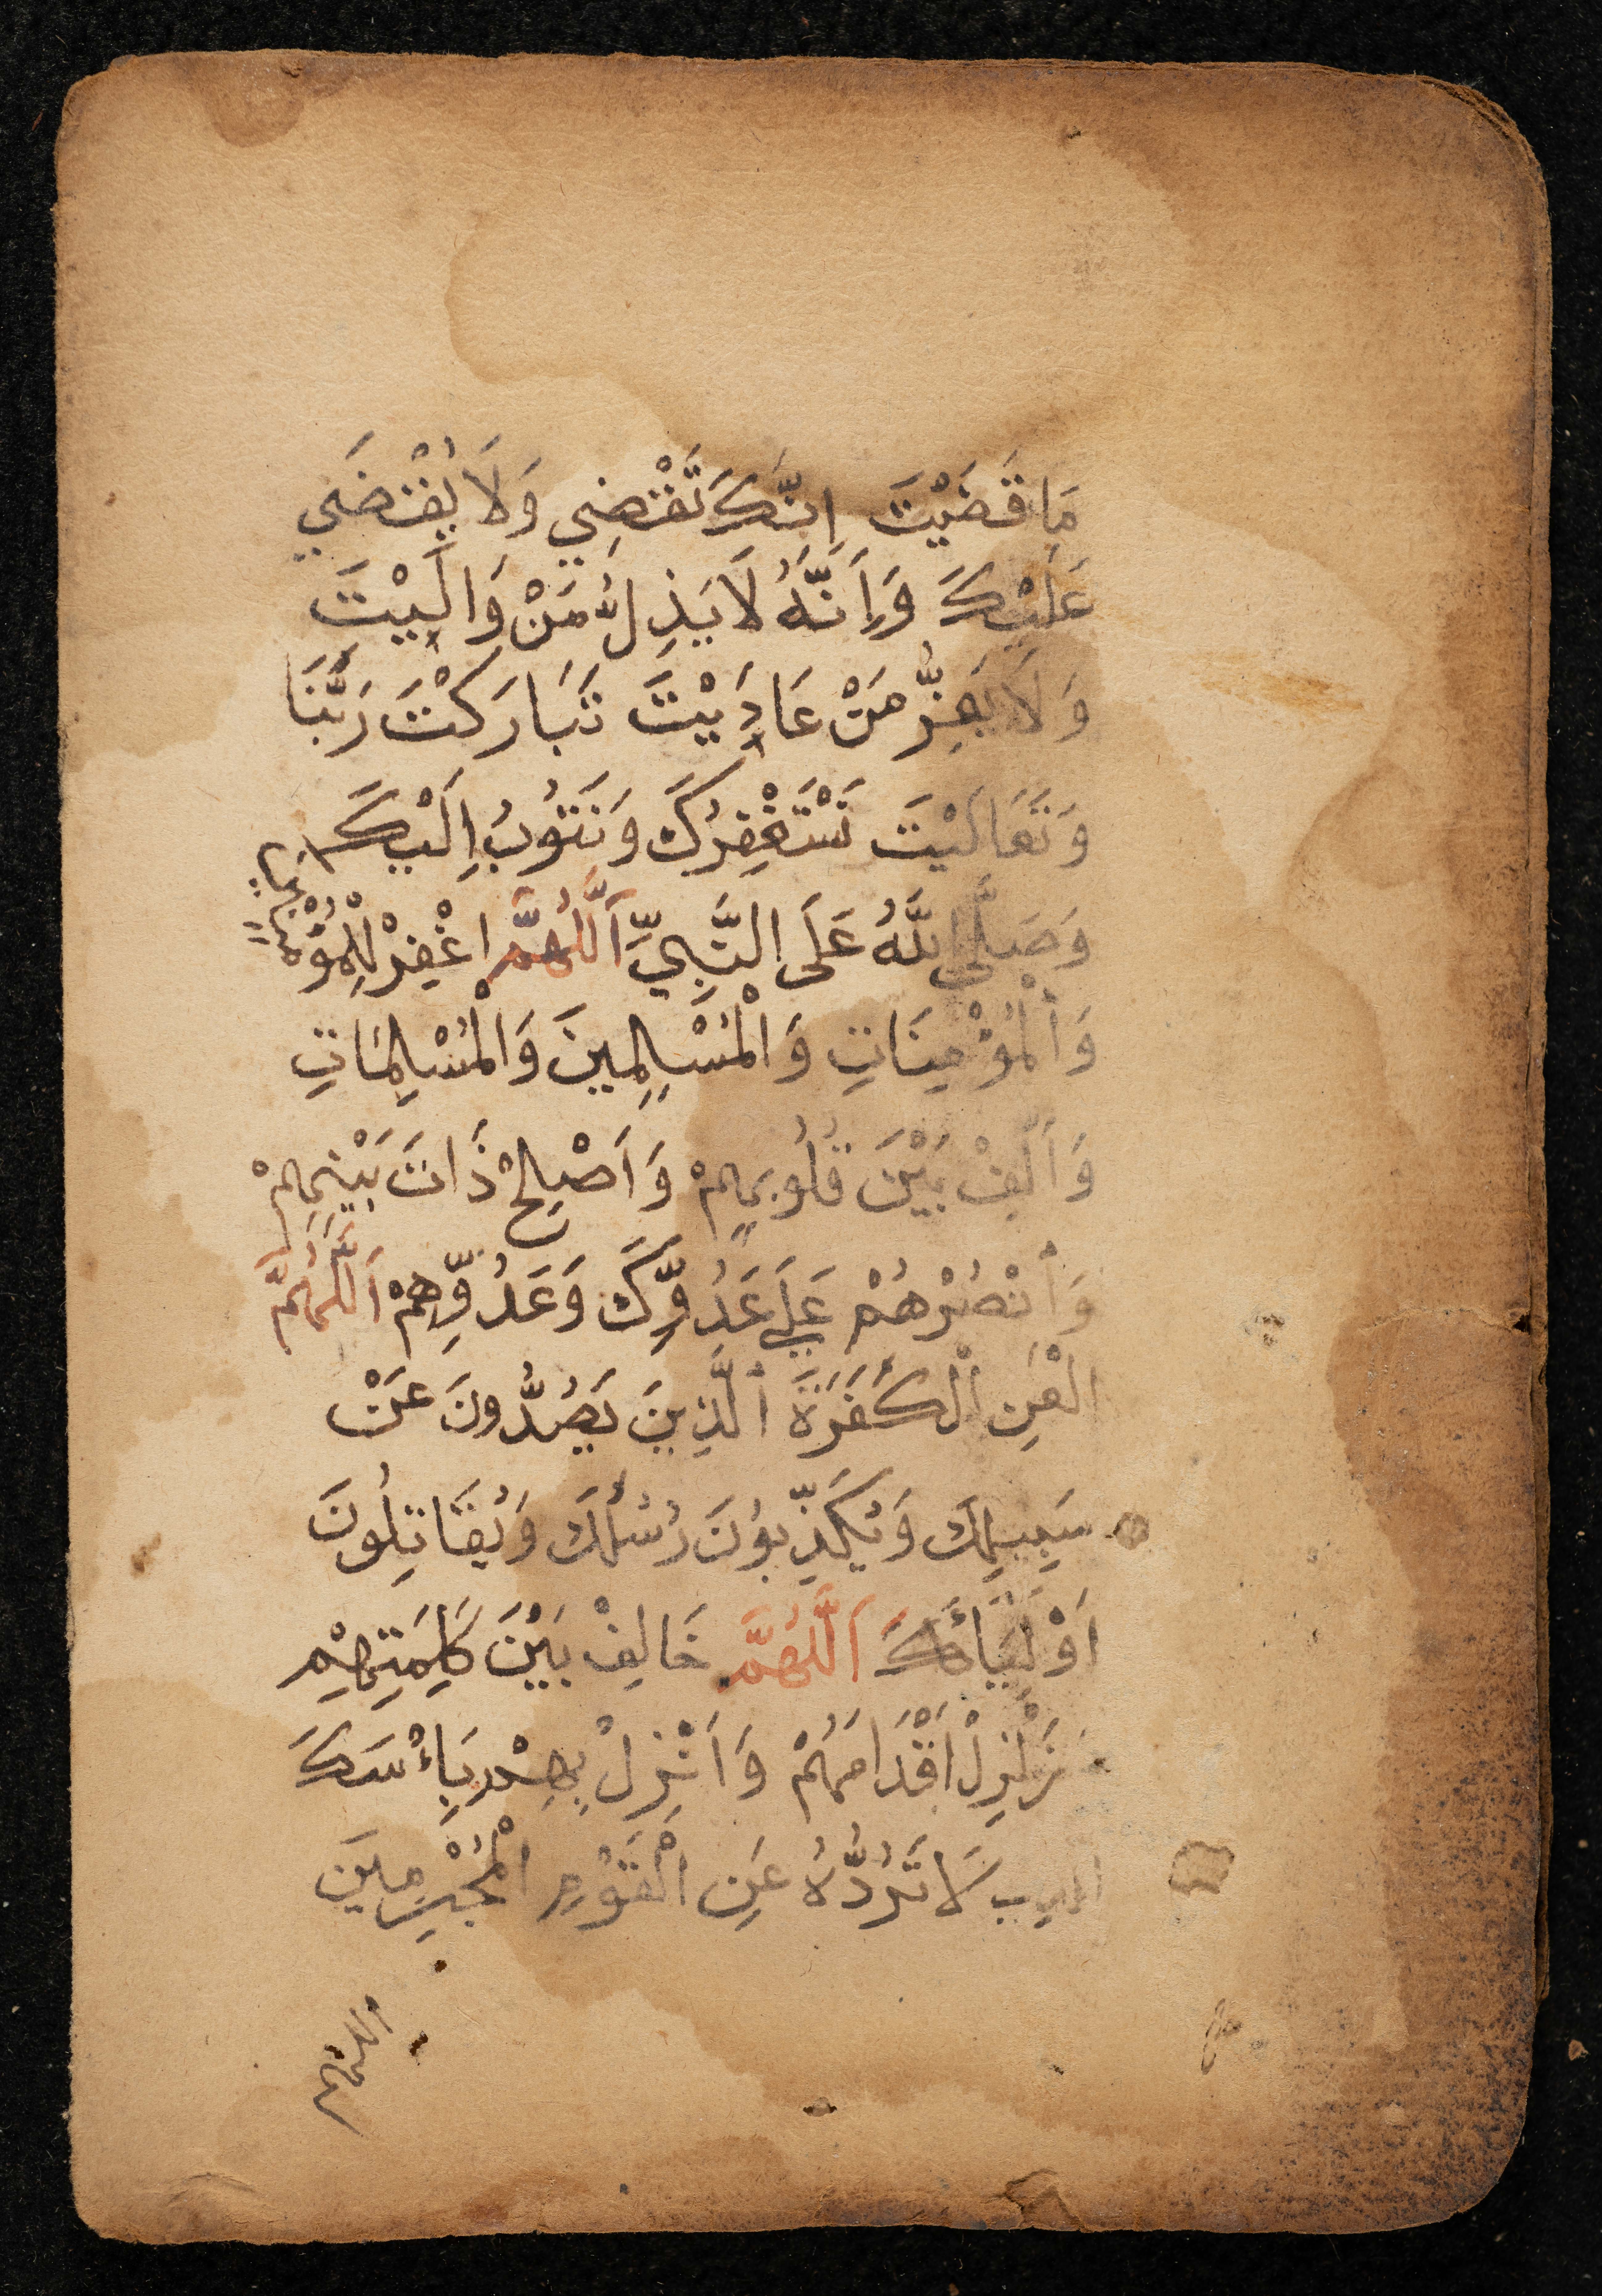 مَا قَضَيْتَ اِنَّكَ تَقْضِي وَلَا يُقْضَي
عَلَيْكَ وَاِنَّهُ لَا يَذِلُّ مَنْ وَالَيْتَ
وَلَا يَعِزُّ مَنْ عَادَيْتَ تَبَارَكْتَ رَبَّنَا
وَتَعَالَيْتَ نَسْتَغْفِرُكَ وَنَتُوبُ اِلَيْكَ
وَصَلَّي اللَّهُ عَلَى النَّبِيِّ اَللَّهُمَّ اغْفِرْ لِلْمُؤْمِنِينَ
وَالْمُؤْمِنَاتِ وَالْمُسْلِمِينَ وَالْمُسْلِمَاتِ
وَاَلِّفْ بَيْنَ قُلُوبِهِمْ وَاَصْلِحْ ذَاتَ بَيْنِهِمْ
وَانْصُرْهُمْ عَلَي عَدُوِّكَ وَعَدُوِّهِمْ اَللَّهُمَّ
الْعَنِ الْكَفَرَةَ الَّذِينَ يَصُدُّونَ عَنْ
سَبِيلِكَ وَيُكَذِّبُونَ رُسُلَكَ وَيُقَاتِلُونَ
اَوْلِيَائَكَ اَللَّهُمَّ خَالِفْ بَيْنَ كَلِمَتِهِمْ
وَزَلْزِلْ اَقْدَامَهُمْ وَاَنْزِلْ بِهِمْ بَأْسَكَ
الذي لَا تَرُدُّهُ عَنِ الْقَوْمِ الْمُجْرِمِينَ
اللهم